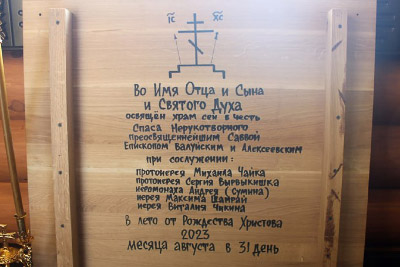 IC XC
Во Имя Отца и Сына
и Святого Духа
освящён храм сей в честь
Спаса Нерукотворного
преосвященнейшим Саввой
Епископом Валуйским и Алексеевским
при сослужении:
протоиерея Михаила Чайка
протоиерея Сергия Вырвыкишка
иеромонаха Андрея (Сумина)
иерея Максима Шайрай
иерея Виталия Чикина
В лето от Рождества Христова
2023
месяца августа в 31 день